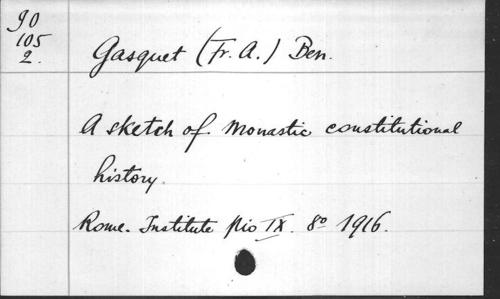 90
105
2.
Gasquet (Fr. A.) Ben.
A sketch of. Monastic constitutional
history.
Rome. Institute Pio IX. 8º 1916.